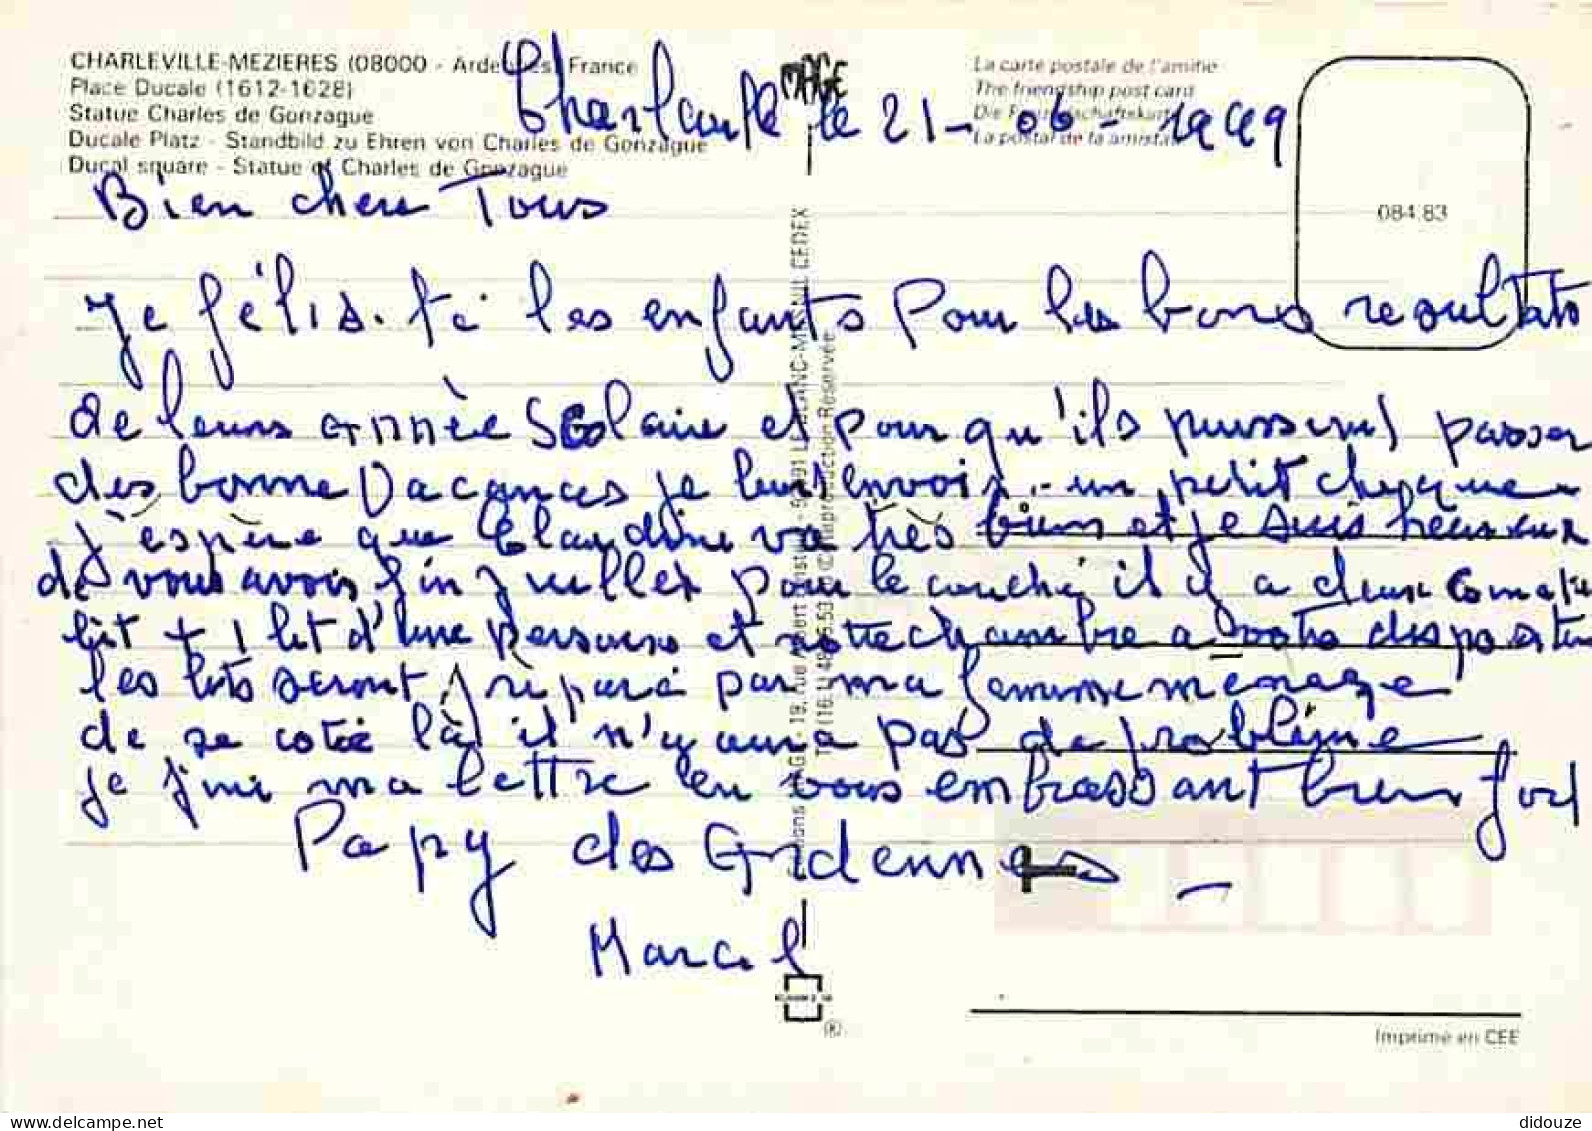 CHARLEVILLE-MEZIERES (08000 - Ardennes) France
Place Ducale (1612-1628)
Statue Charles de Gonzague
Ducale Platz - Standbild zu Ehren von Charles de Gonzague
Ducal square - Statue of Charles de Gonzague
MAGE
La carte postale de l'amitié
The friendship post card
Die Freundschaftskarte
La postal de la amistad
084.83
le 21 - 06 - 1999
Bien chere Tous
Je félis. te les enfants pour les bons resultats
de leurs année scolaire et pour qu'ils puissent passer
des bonne vacances je leurs envois un petit cheque
j'espère que Claudine va très bien et je suis heureux
de vous avois fin juillet pour le couché il y a deux
lit + 1 lit d'une personne et notte chambre a votre disposition
les lits seront préparé par ma femme menage
de se coté là il n'y aura pas de problème
je fini ma lettre en vous embrassant bien fort
Papy des Ardennes -
Marcel
®
Imprimé en CEE